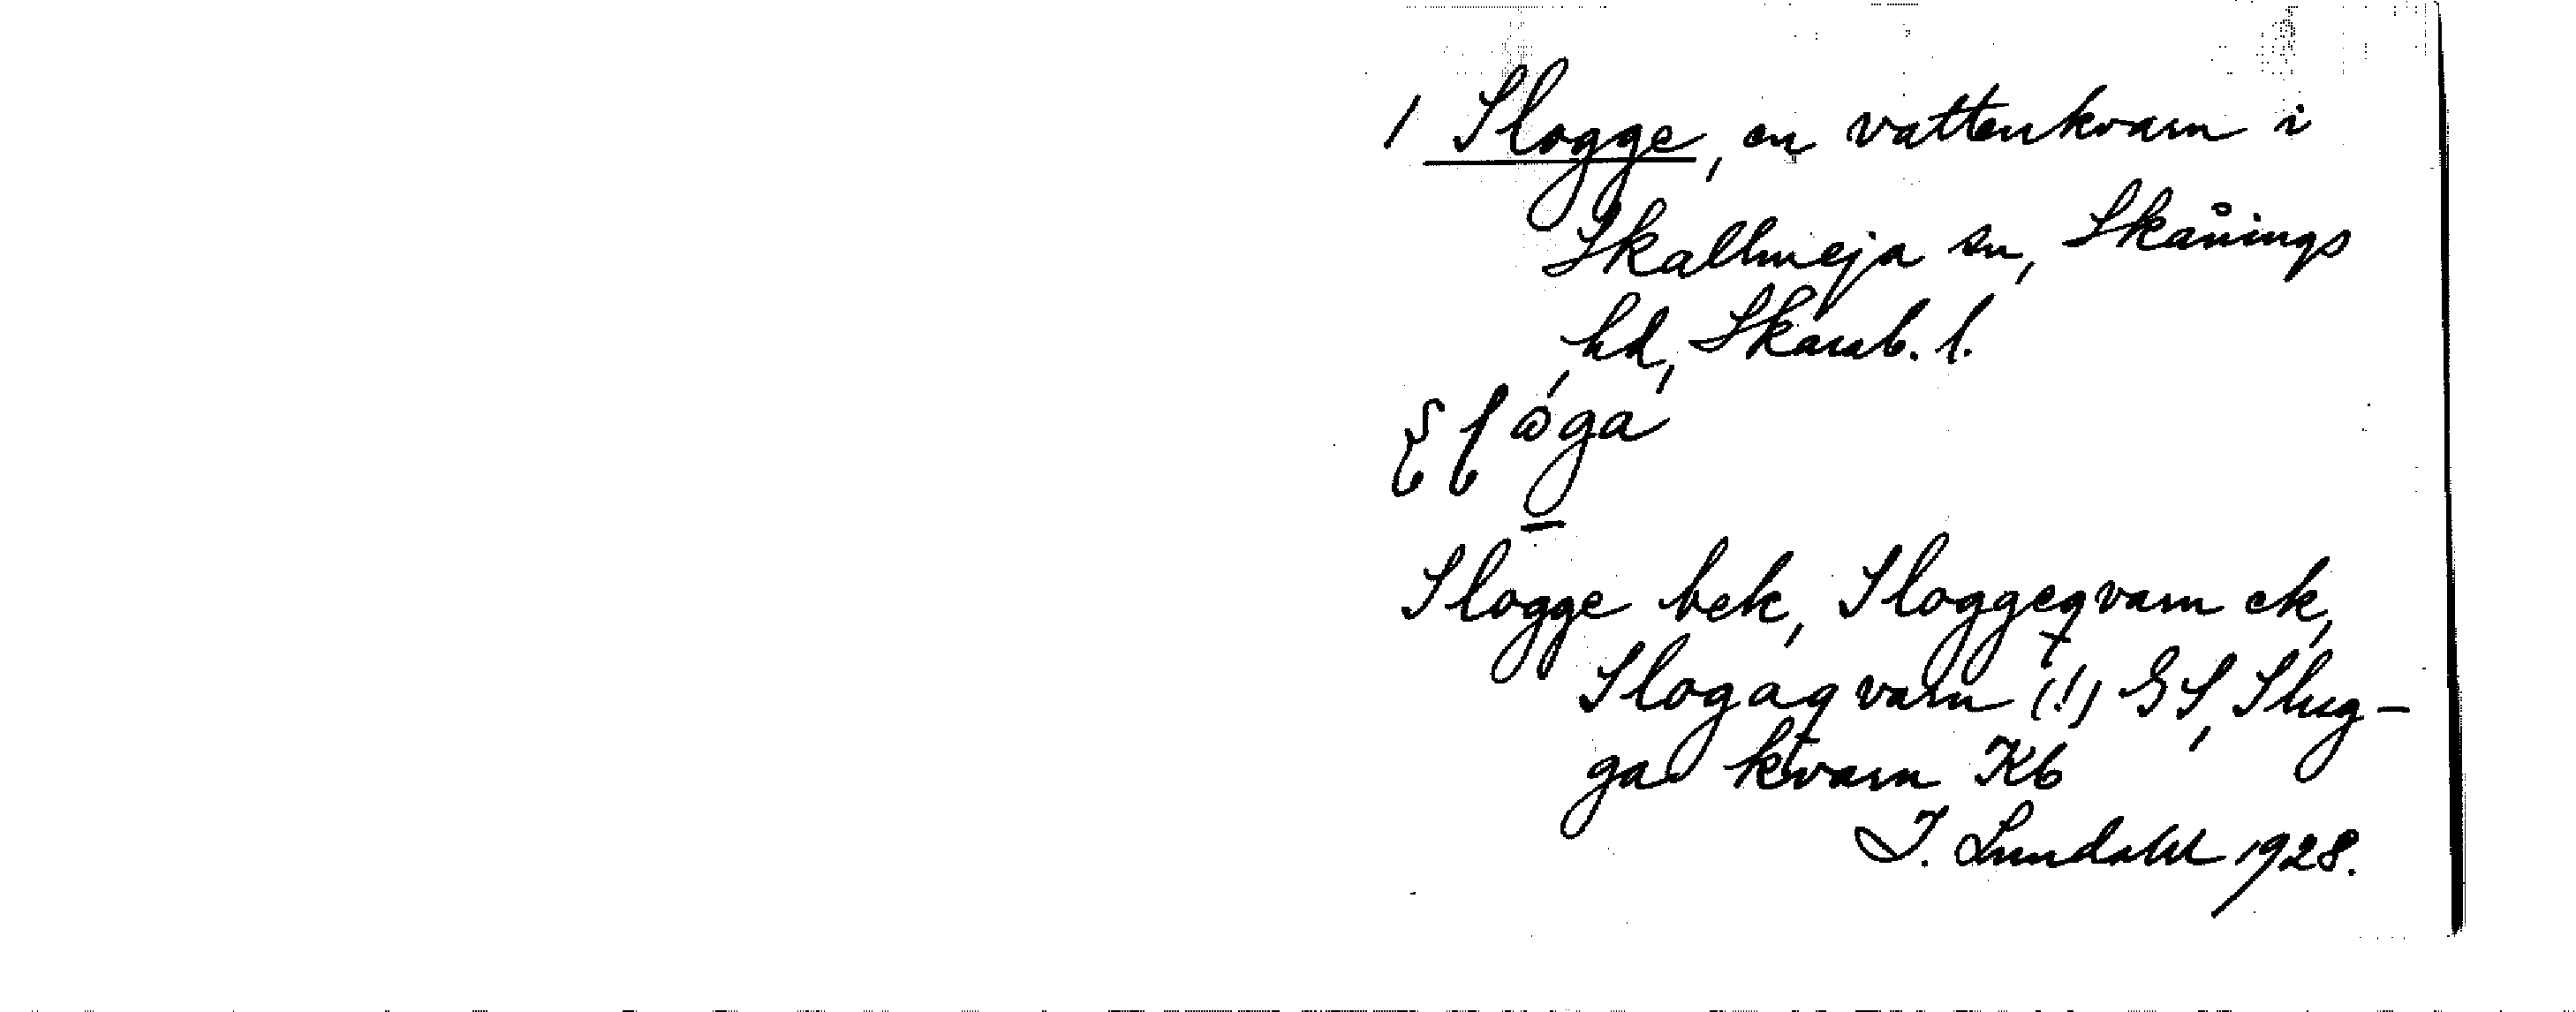 1 Slogge, en vattenkvarn i
Skallmeja sn, Skånings
hd, Skarab. l.
Slogge bek, Sloggeqvarn ek,
Slogaqvarn (!) GS, Slug-
ga kvarn Kb
I. Lundahl 1928.